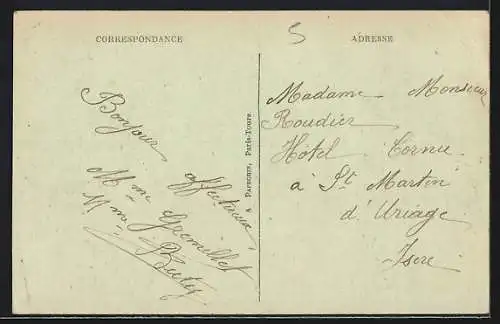 CORRESPONDANCE
Bonjour
affectueux
Mme Gremillet
Mme
ADRESSE
5
Madame Monsieur
Roudier
Hôtel Cornu
à St Martin
d'Uriage
Isère
PAPEGHIN, Paris-Tours.